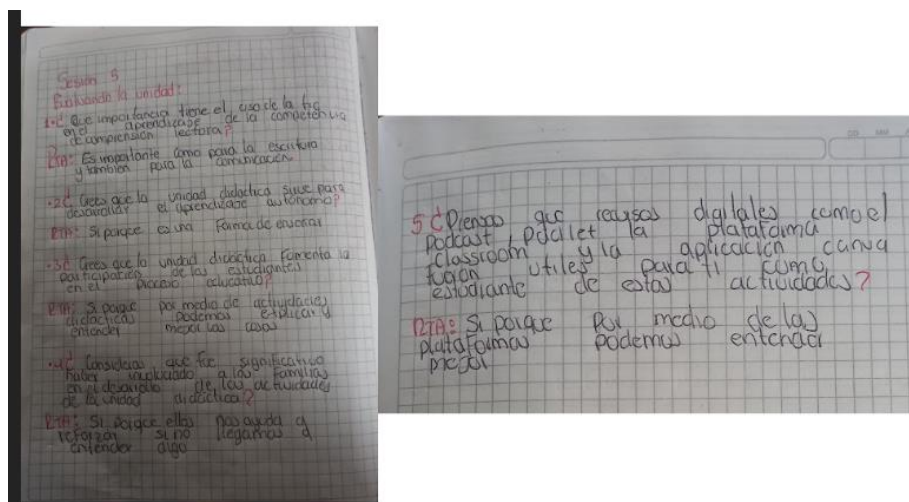 Sesión 5
Evaluando la unidad:
1. ¿Que importancia tiene el uso de la tic
en el aprendizaje de la competencia
de comprensión lectora?
RTA: Es importante como para la escritura
y también para la comunicación
.2¿ Crees que la unidad didactica sirve para
desarrollar el aprendizaje autónomo?
RTA: Si porque es una Forma de enseñar
.3¿ Crees que la unidad didactica Fomenta la
participación de las estudiantes
en el proceso educativo?
RTA: Si porque por medio de actividades
didacticas podemos explicar y
entender mejor las cosas
.4¿ Consideras que fue significativo
haber involucrado a las Familias
en el desarrollo de las actividades
de la unidad didáctica?
RTA: Si porque ellos nos ayuda a
reforzar si no llegamos a
entender algo
5 ¿Piensas que recursos digitales como el
podcast, padlet la plataforma
classroom y la aplicación canva
fueron utiles para ti como
estudiante de estas actividades?
RTA: Si porque por medio de las
plataformas podemos entender
mejor